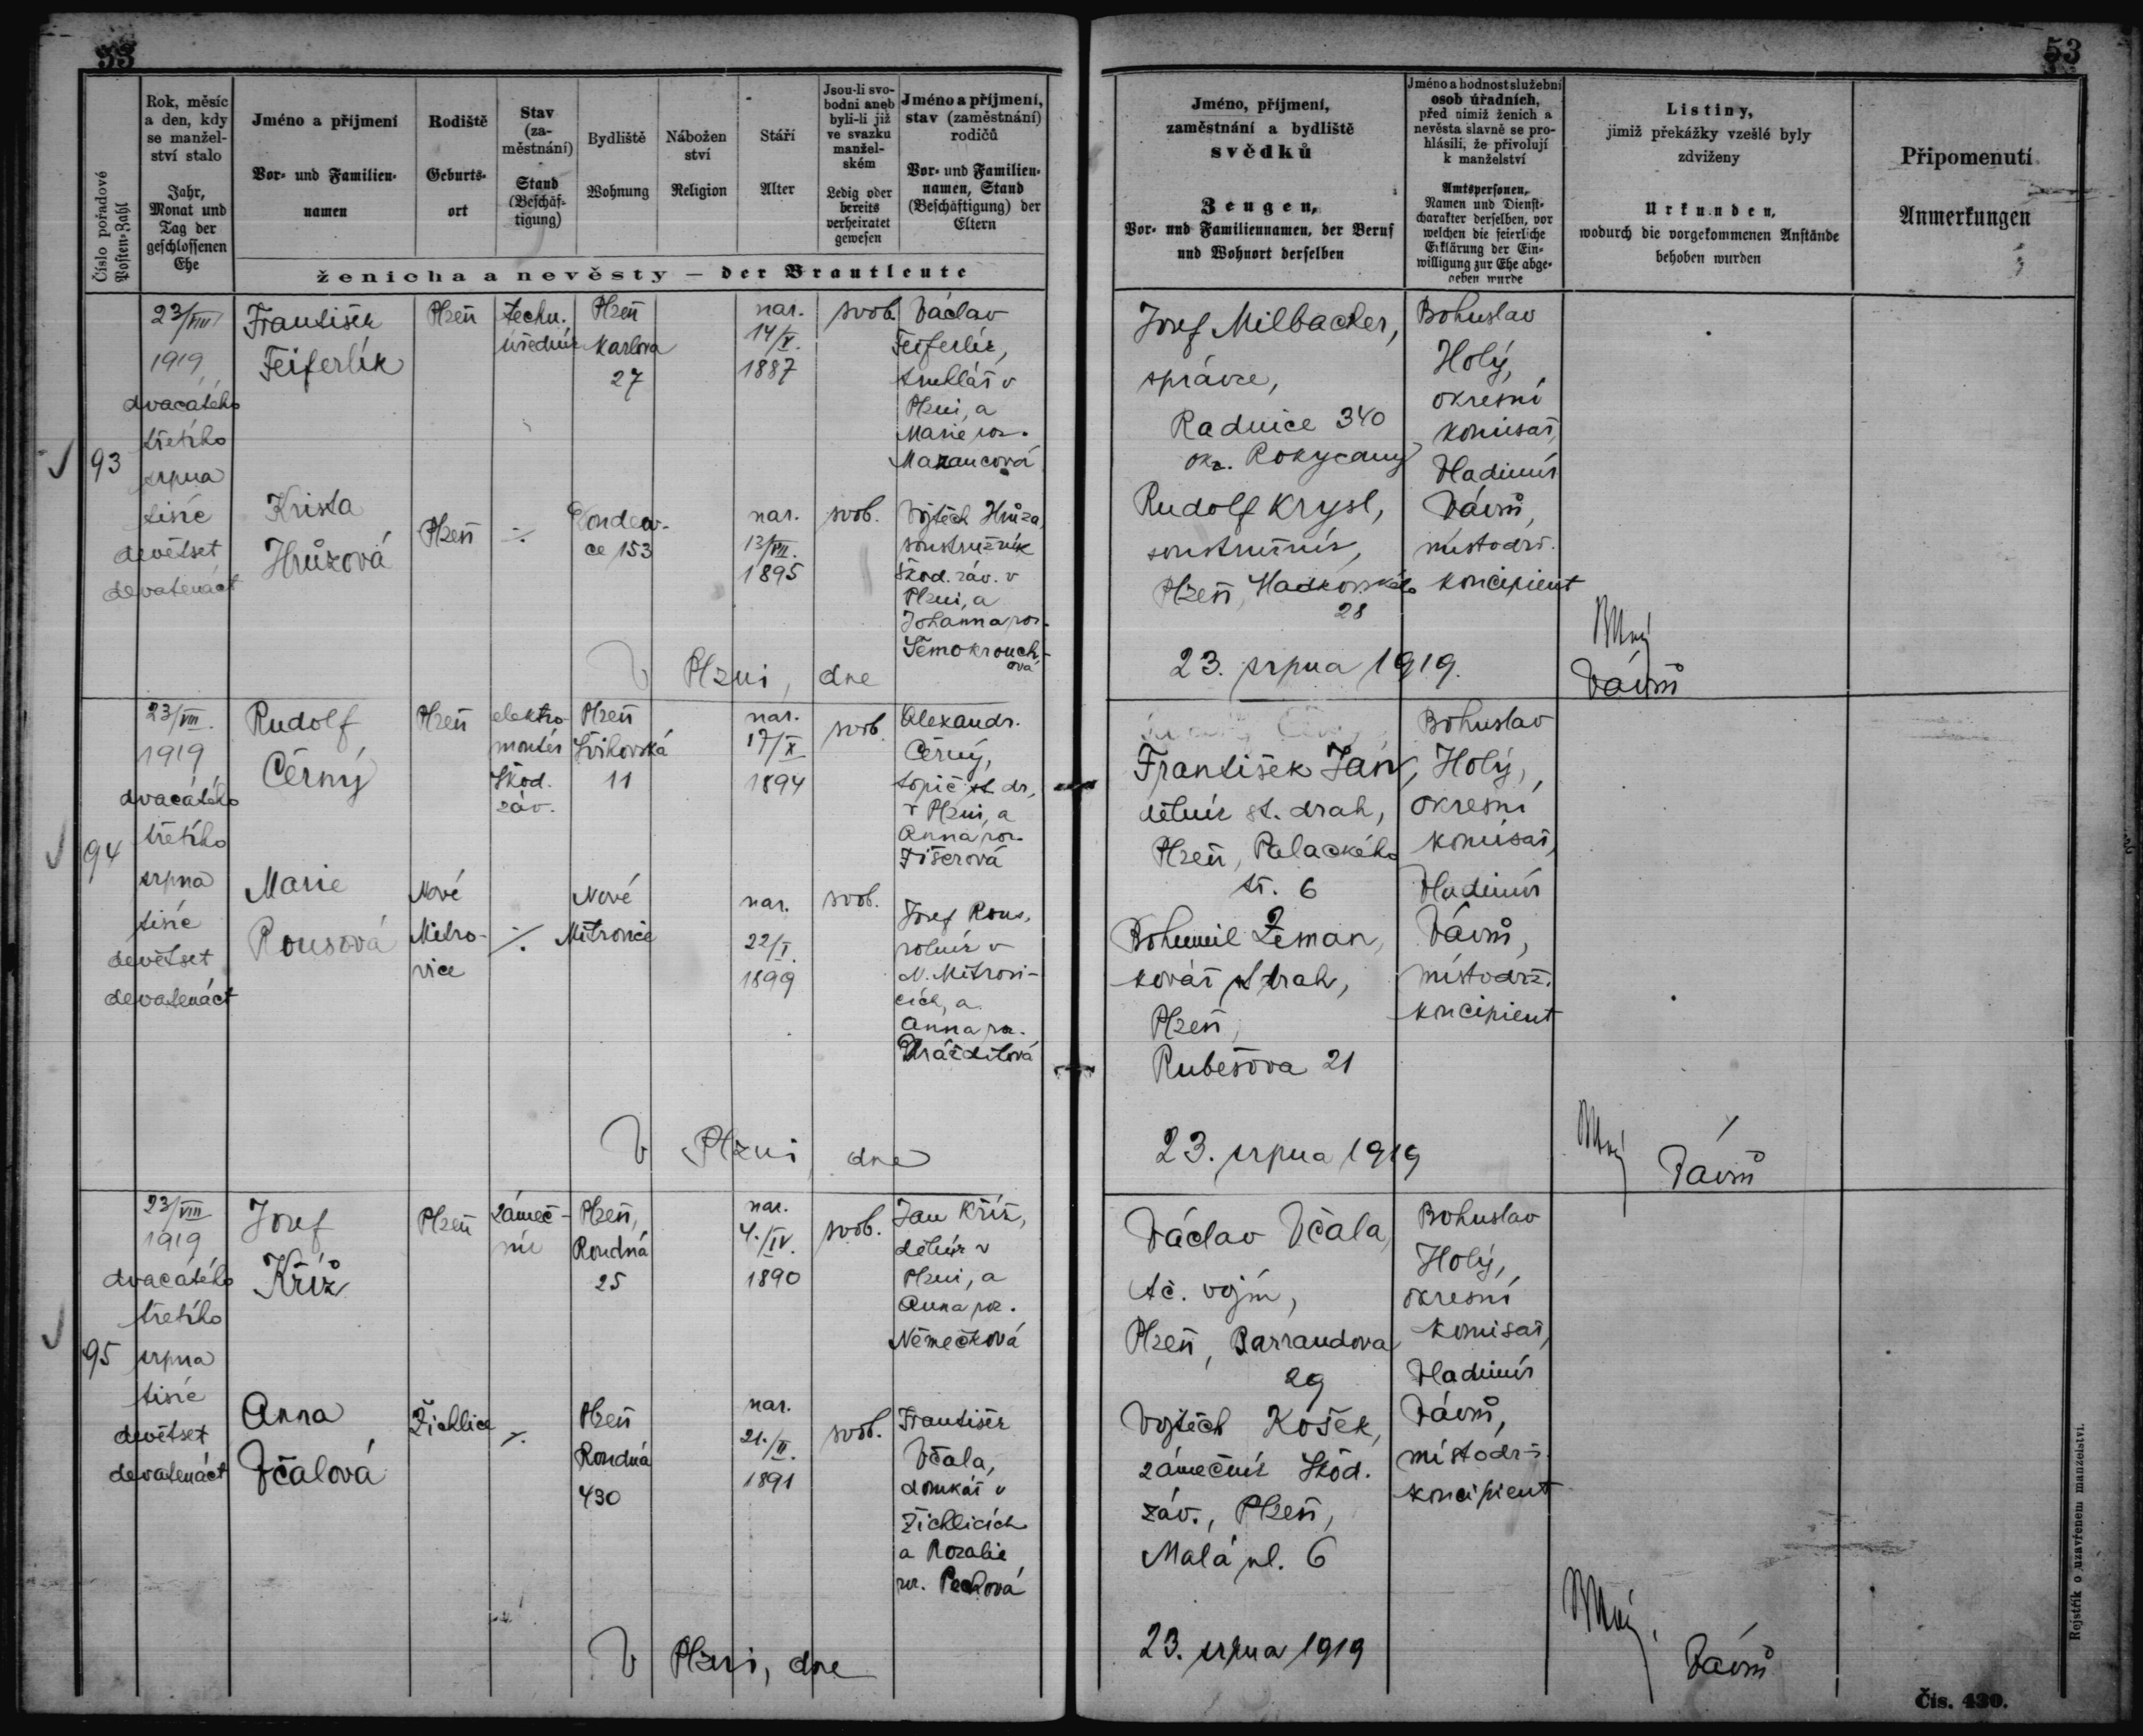 53
53
Číslo pořadové
Posten-Zahl
Rok, měsíc
a den, kdy
se manžel-
ství stalo
Jahr,
Monat und
Tag der
geschlossenen
Ehe
Jméno a příjmení
Vor- und Familien-
namen
Rodiště
Geburts-
ort
Stav
(za-
městnání)
Stand
(Beschäf-
tigung)
Bydliště
Wohnung
Nábožen
ství
Religion
Stáří
Alter
Jsou-li svo-
bodni aneb
byli-li již
ve svazku
manžel-
ském
Ledig oder
bereits
verheiratet
gewesen
Jméno a příjmení,
stav (zaměstnání)
rodičů
Vor- und Familien-
namen, Stand
(Beschäftigung) der
Eltern
ženicha a nevěsty — der Brautleute
Jméno, příjmení,
zaměstnání a bydliště
svědků
Zeugen,
Vor- und Familiennamen, der Beruf
und Wohnort derselben
Jméno a hodnost služební
osob úřadních,
před nimiž ženich a
nevěsta slavně se pro-
hlásili, že přivolují
k manželství
Amtspersonen,
Namen und Dienst-
charakter derselben, vor
welchen die feierliche
Erklärung der Ein-
willigung zur Ehe abge-
geben wurde
Listiny,
jimiž překážky vzešlé byly
zdviženy
Urkunden,
wodurch die vorgekommenen Anstände
behoben wurden
Připomenutí
Anmerkungen
93
23/VIII
1919
dvacátého
třetího
srpna
tisíc
devětset
devatenáct
František
Feiferlík
Plzeň
techn.
úředník
Plzeň
Karlova
27
nar.
14/V.
1887
svob.
Václav
Feiferlík,
truhlář v
Plzni, a
Marie roz.
Mazancová
Krista
Hrůzová
Plzeň
÷
ce 153
nar.
13/VII.
1895
svob.
Vojtěch Hrůza,
soustružník
Škod. záv. v
Plzni, a
Johanna roz.
Semokrouch-
ová
Josef Milbacher,
správce,
Radnice 340
okr. Rokycany
Rudolf Krysl,
soustružník,
Plzeň, Hadkovského
28
Bohuslav
Holý,
okresní
komisař,
Vladimír
Vávrů,
místodrž.
koncipient
V Plzni, dne
23. srpna 1919.
Vávrů
94
23/VIII.
1919
dvacátého
třetího
srpna
tisíc
devětset
devatenáct
Rudolf
Černý
Plzeň
elektro-
montér
Škod.
záv.
Plzeň
Švihovská
11
nar.
17/X
1894
svob.
Alexandr.
Černý,
topič st. dr.,
v Plzni, a
Anna roz.
Fišerová
Marie
Rousová
Nové
Mitro-
vice
÷
Nové
Mitrovice
nar.
22/I.
1899
svob.
Josef Rous,
rolník v
N. Mitrovi-
cích, a
Anna roz.
František Jan,
dělník st. drah,
Plzeň, Palackého
tř. 6
Bohumil Zeman,
kovář st drah,
Plzeň,
Rubešova 21
Bohuslav
Holý,
okresní
komisař,
Vladimír
Vávrů,
místodrž.
koncipient
V Plzni, dne
23. srpna 1919
Vávrů
95
23/VIII
1919
dvacátého
třetího
srpna
tisíc
devětset
devatenáct
Josef
Kříž
Plzeň
zámeč-
ník
Plzeň,
Roudná
25
nar.
4./IV.
1890
svob.
Jan Kříž,
dělník v
Plzni, a
Anna roz.
Němečková
Anna
Včalová
Žichlice
÷
Plzeň
Roudná
430
nar.
21./II.
1891
svob.
František
Včala,
domkář v
Žichlicích
a Rozalie
roz. Pechová
Václav Včala,
tč. vojín,
Plzeň, Barrandova
29
Vojtěch Košek,
zámečník Škod.
záv., Plzeň,
Malá ul. 6
Bohuslav
Holý,
okresní
komisař,
Vladimír
Vávrů,
místodrž.
koncipient
V Plzni, dne
23. srpna 1919
Vávrů
Rejstřík o uzavřeném manželství.
Čís. 430.